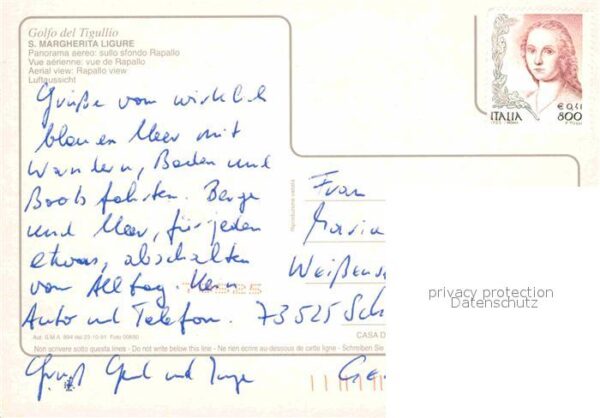 Golfo del Tigullio
S. MARGHERITA LIGURE
Panorama aereo: sullo sfondo Rapallo
Vue aérienne: vue de Rapallo
Aerial view: Rapallo view
Luftaussicht
€ 0,41
ITALIA 800
Grüße vom wirklich
blauen Meer mit
Wandern, Baden und
Boots fahrten. Berge
und Meer, für jeden
etwas, abschalten
vom Alltag. Kein
Auto und Telefon.
Gruß Gerd und Inge
Riproduzione vietata
Frau
Maria
Weißens
73525 Sch
Ge
73525
privacy protection
Datenschutz
Aut. S.M.A. 894 del 23-10-91 Foto 00650
CASA D
Non scrivere sotto questa linea - Do not write below this line - Ne rien écrire au-dessous de cette ligne - Schreiben Sie